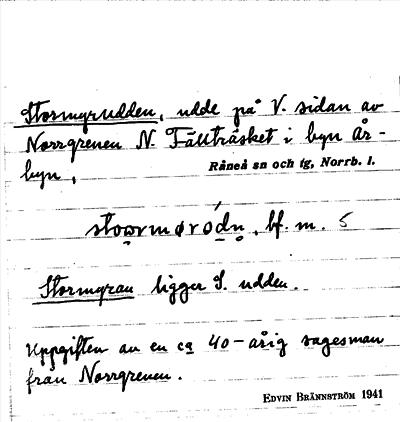 Stormyrudden, udde på V. sidan av
Norrgrenen N. Fällträsket i byn År-
byn,
Råneå sn och tg, Norrb. l.
bf. m. 5
Stormyran ligger S. udden.
Uppgiften av en ca 40-årig sagesman
från Norrgrenen.
EDVIN BRÄNNSTRÖM 1941